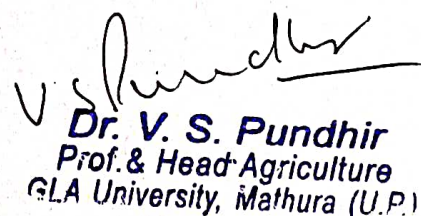 V S Pundhir
Dr. V. S. Pundhir
Prof. & Head Agriculture
GLA University, Mathura (U.P.)